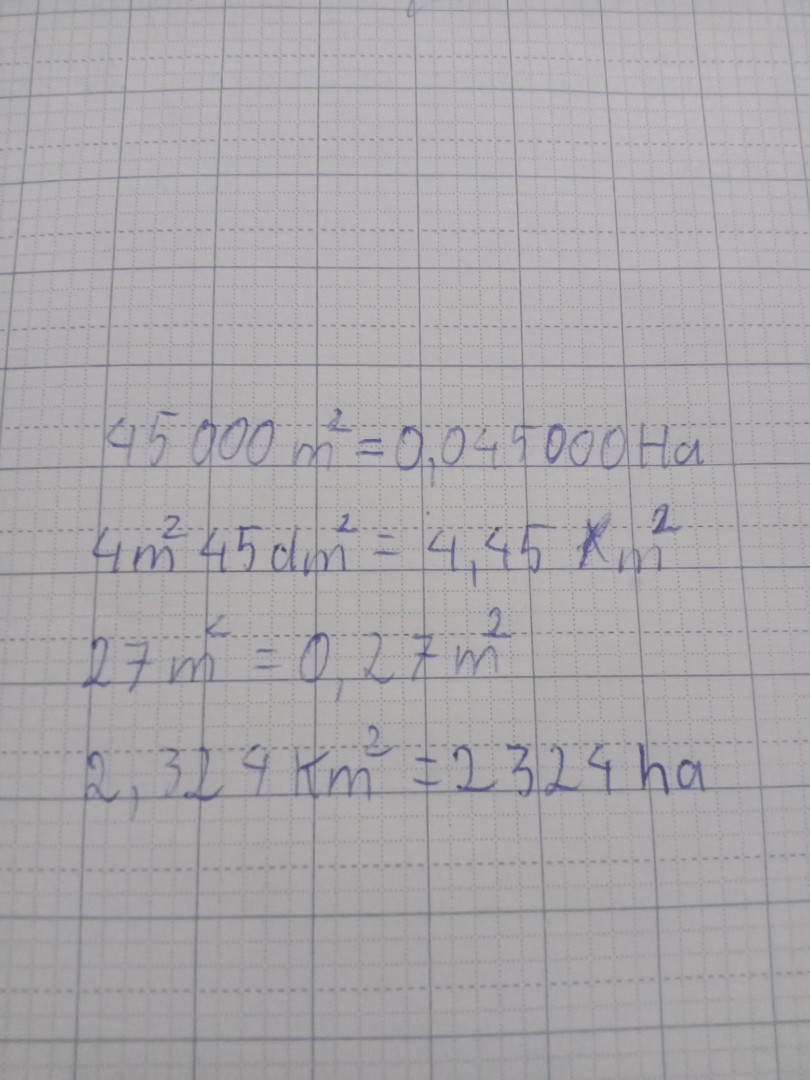 45 000 m² = 0,045000 Ha
4m² 45 dm² = 4,45 Km²
27 m² = 0,27 m²
2,324 Km² = 2324 ha